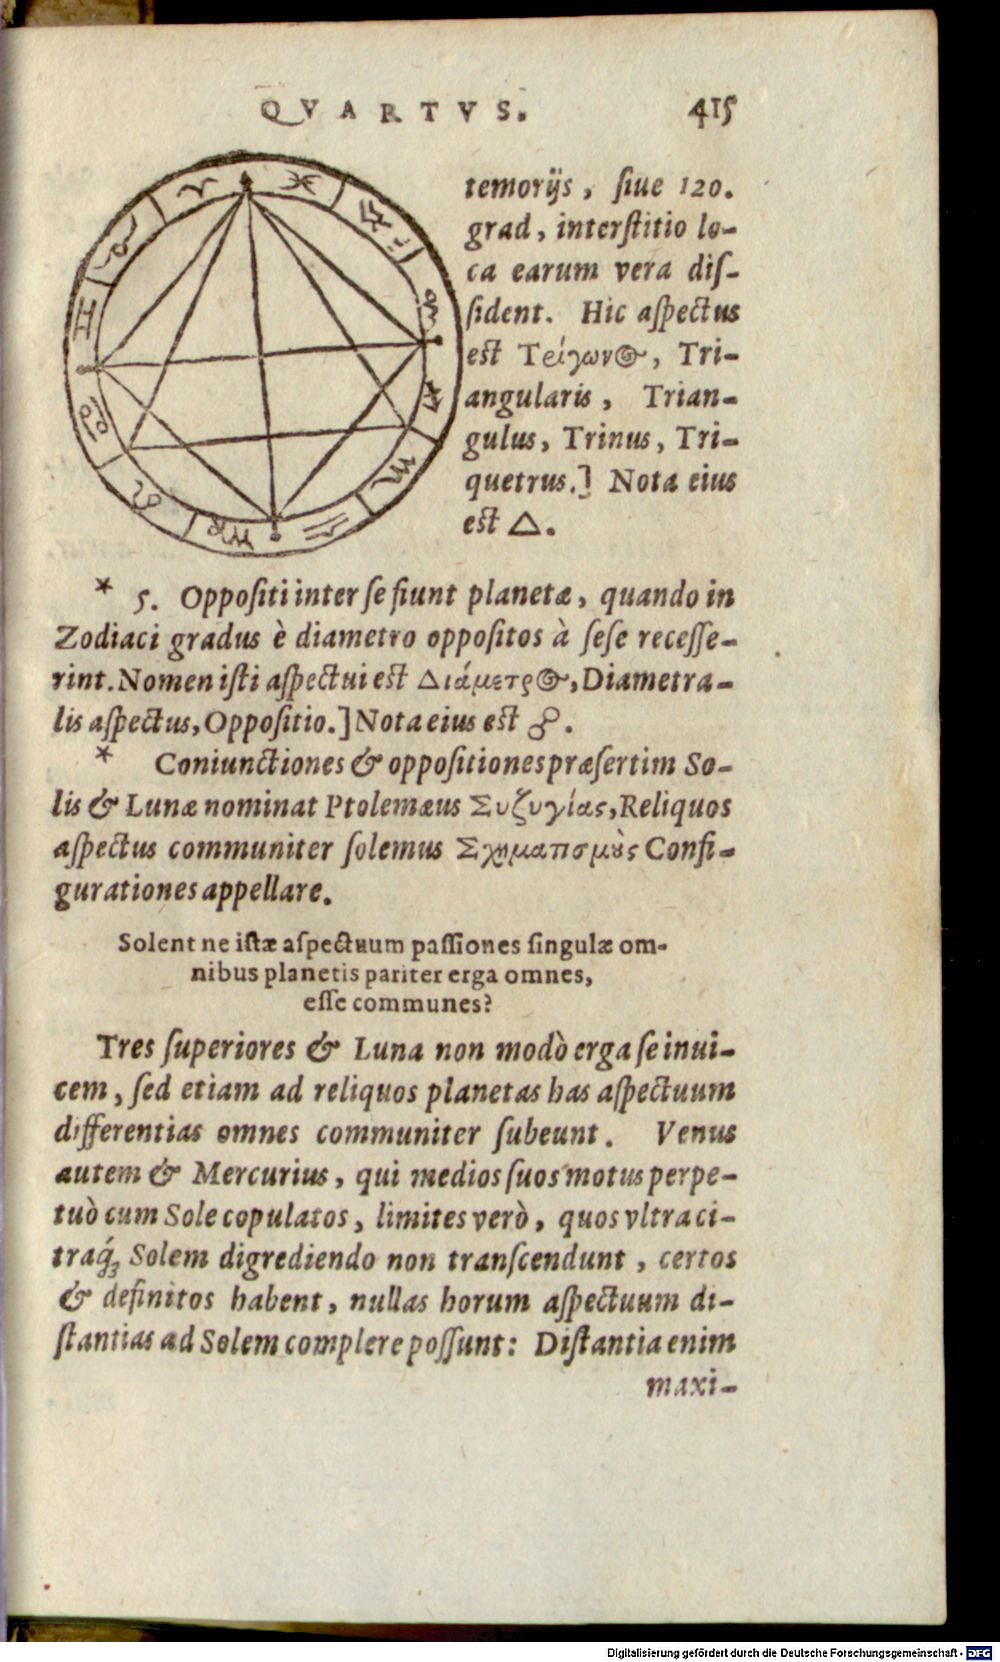 QVARTVS. 415
temorijs, siue 120.
grad, interstitio lo-
ca earum vera dis-
sident. Hic aspectus
est Τρίγωνος, Tri-
angularis, Trian-
gulus, Trinus, Tri-
quetrus.] Nota eius
est △.
* 5. Oppositi inter se fiunt planetæ, quando in
Zodiaci gradus è diametro oppositos à sese recesse-
rint. Nomen isti aspectui est Διάμετρος, Diametra-
lis aspectus, Oppositio.] Nota eius est ☍.
* Coniunctiones & oppositiones præsertim So-
lis & Lunæ nominat Ptolemæus Συζυγίας, Reliquos
aspectus communiter solemus Σχηματισμοὺς Confi-
gurationes appellare.
Solent ne istæ aspectuum passiones singulæ om-
nibus planetis pariter erga omnes,
esse communes?
Tres superiores & Luna non modò erga se inui-
cem, sed etiam ad reliquos planetas has aspectuum
differentias omnes communiter subeunt. Venus
autem & Mercurius, qui medios suos motus perpe-
tuò cum Sole copulatos, limites verò, quos vltra ci-
traq́; Solem digrediendo non transcendunt, certos
& definitos habent, nullas horum aspectuum di-
stantias ad Solem complere possunt: Distantia enim
maxi-
Digitalisierung gefördert durch die Deutsche Forschungsgemeinschaft - DFG